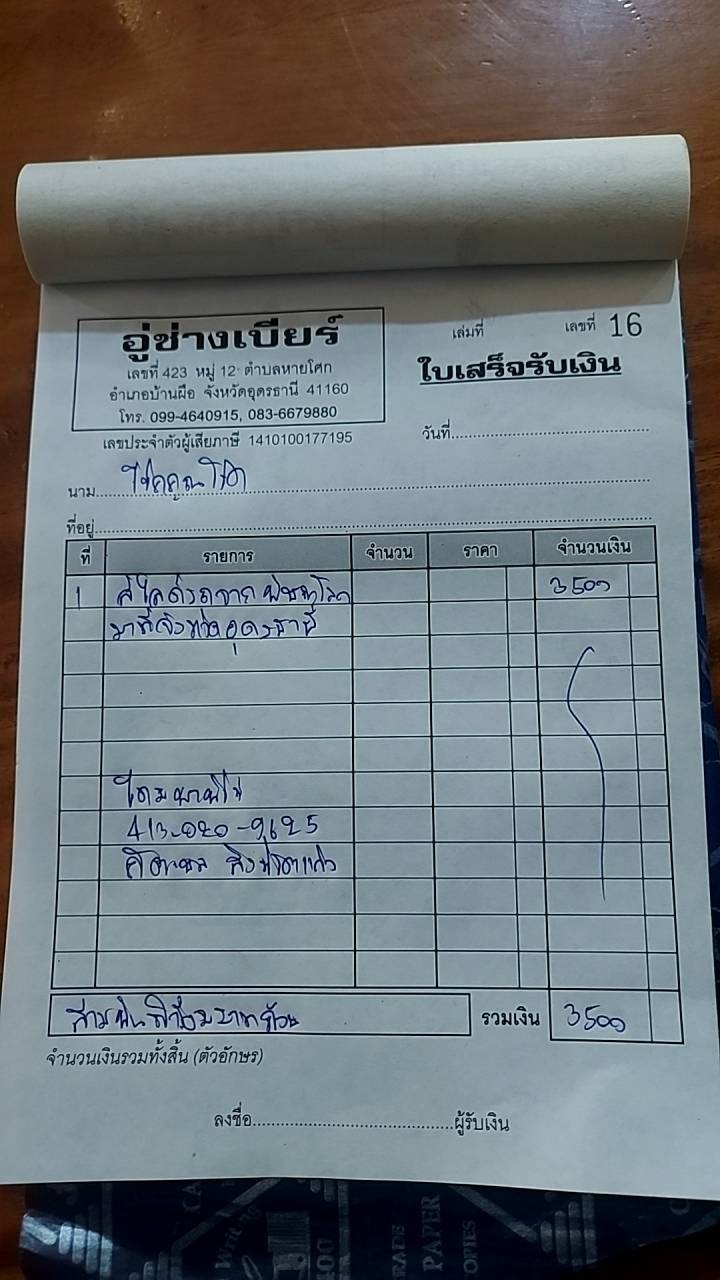 อู่ช่างเบียร์
เลขที่ 423 หมู่ 12 ตำบลหายโศก
อำเภอบ้านผือ จังหวัดอุดรธานี 41160
โทร. 099-4640915, 083-6679880
เลขประจำตัวผู้เสียภาษี 1410100177195
เล่มที่ เลขที่ 16
ใบเสร็จรับเงิน
วันที่
นาม
ที่อยู่
ที่ รายการ จำนวน ราคา จำนวนเงิน
1 ค่าสไลด์รถจากพิษณุโลก 3500
มาที่จังหวัดอุดรธานี
413-020-9625
สามพันห้าร้อยบาทถ้วน รวมเงิน 3500
จำนวนเงินรวมทั้งสิ้น (ตัวอักษร)
ลงชื่อ ผู้รับเงิน
WritinG
400
RADE
PAPER
OPIES